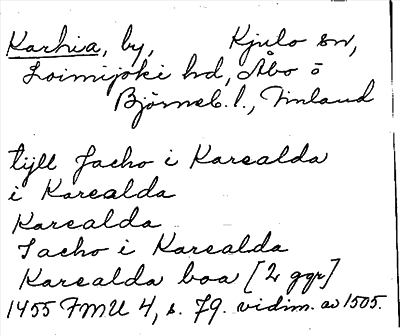 Karhia, by, Kjulo sn,
Loimijoki hd, Åbo o
Björneb. l., Finland
tijll Jacho i Karealda
i Karealda
Karealda
Jacho i Karealda
Karealda boa [2 ggr]
1455 FMU 4, s. 79. vidim. av 1505.